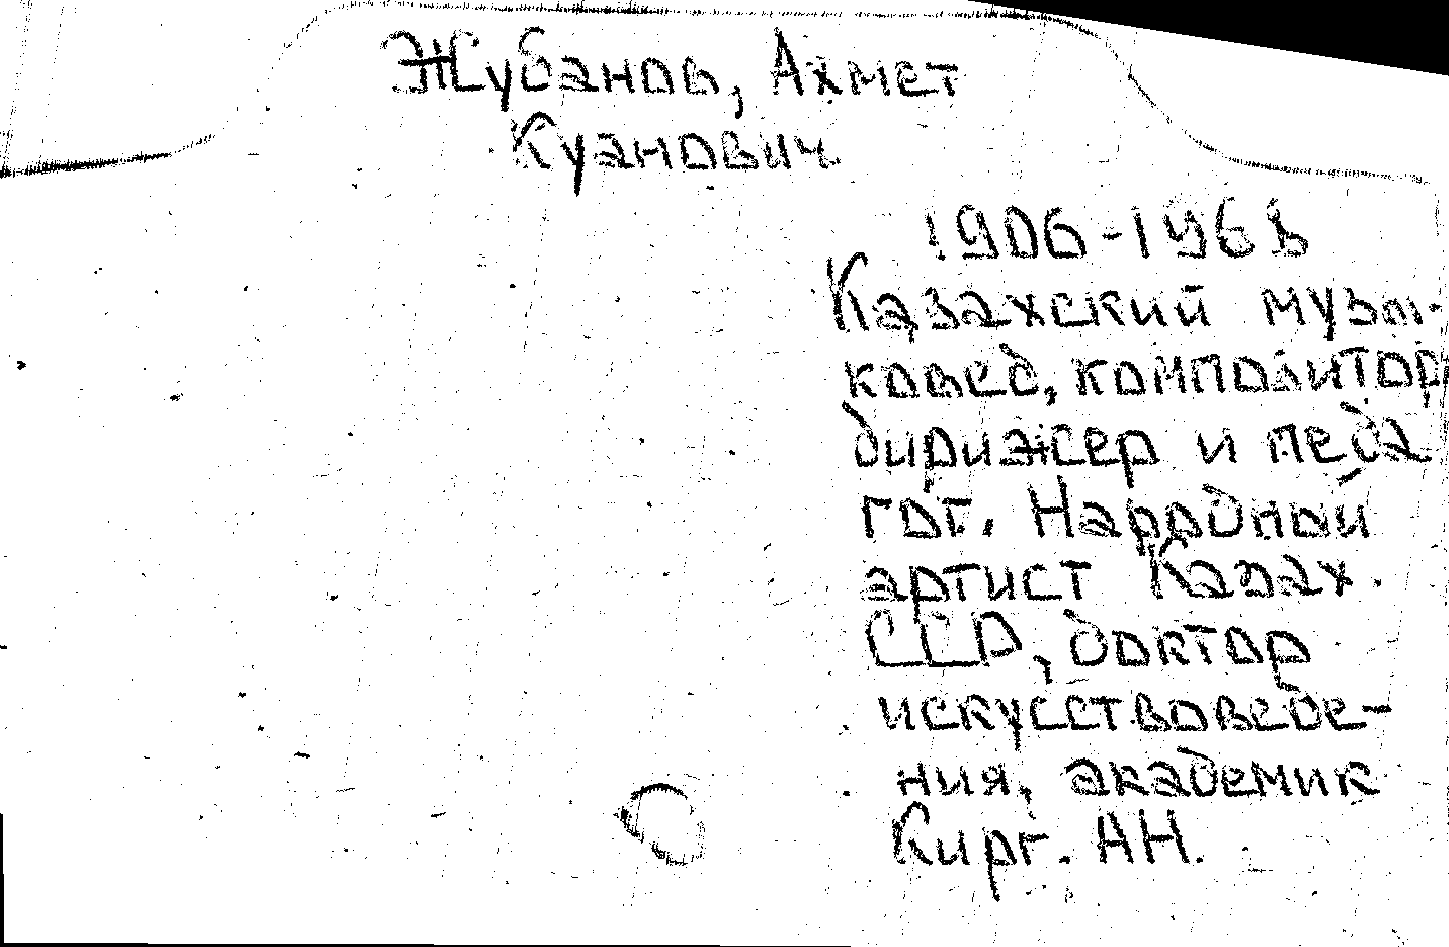 Жубанов, Ахмет
Куанович
1906-1968
Казахский музы-
ковед, композитор
дирижер и педа
гог. Народный
артист Казах.
ССР, доктор
искусствоведе-
ния, академик
Кирг. АН.